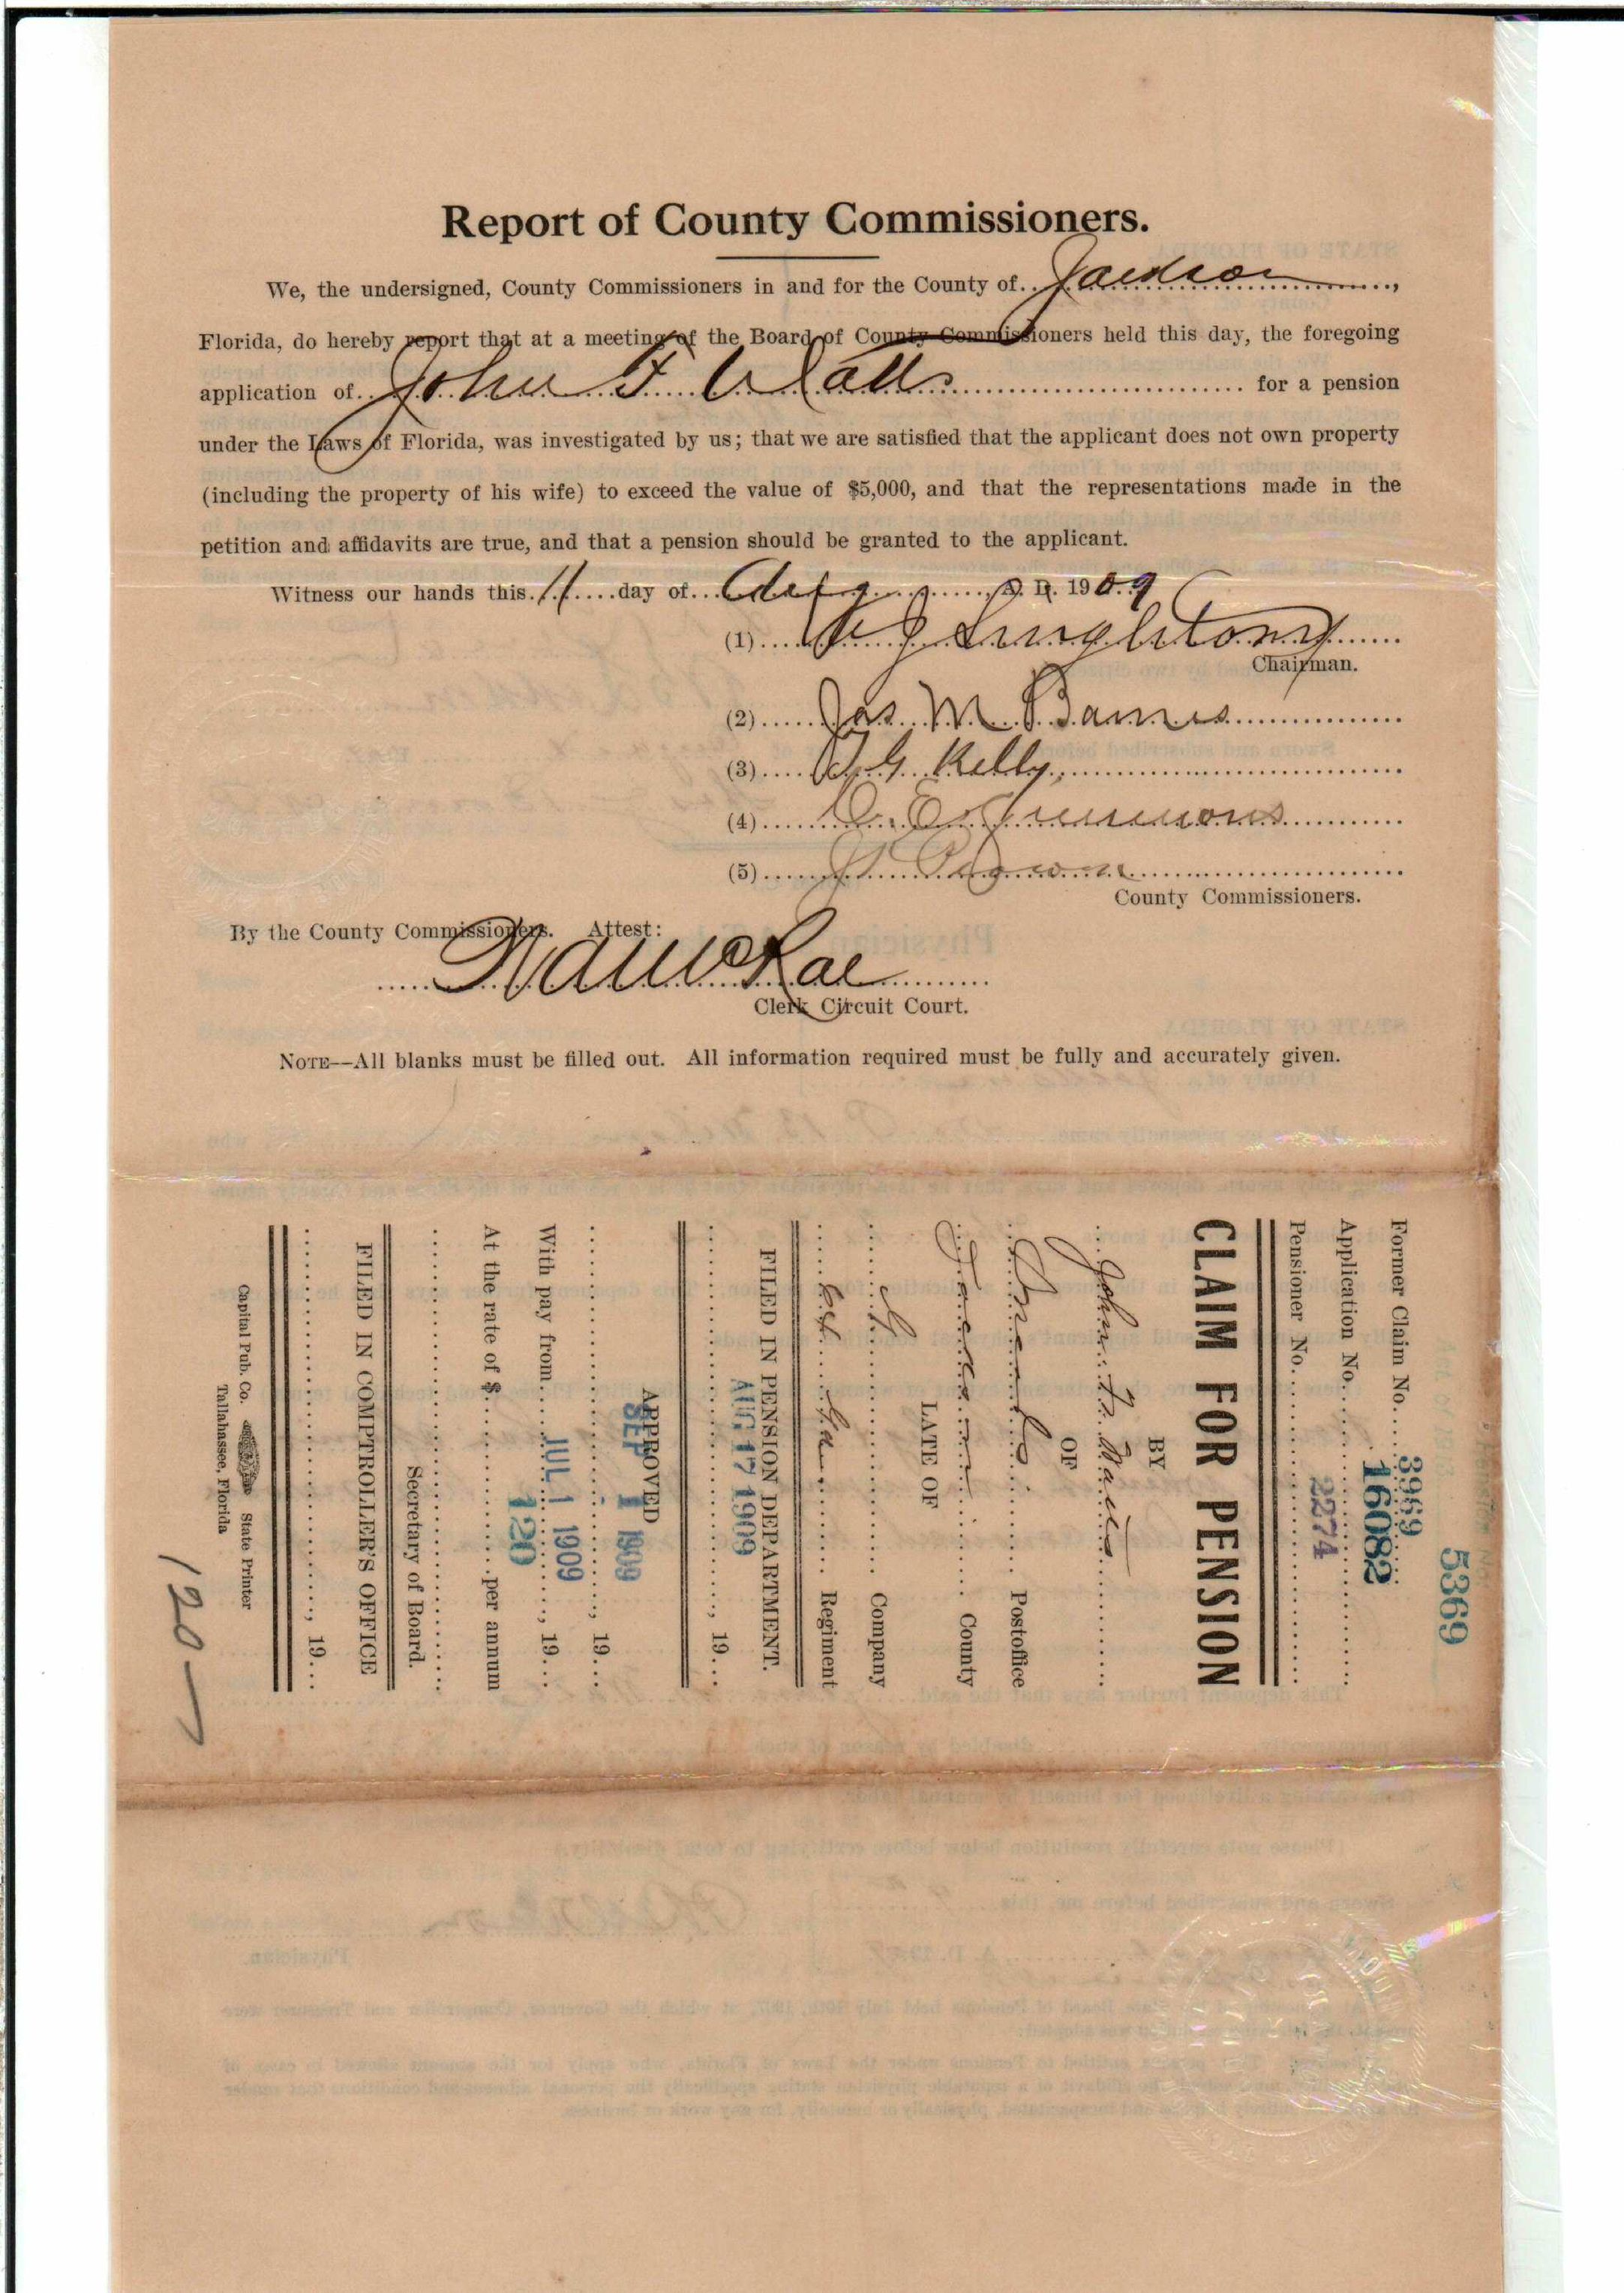 Report of County Commissioners.
We, the undersigned, County Commissioners in and for the County of Jackson,
Florida, do hereby report that at a meeting of the Board of County Commissioners held this day, the foregoing
application of John F Watts for a pension
under the Laws of Florida, was investigated by us; that we are satisfied that the applicant does not own property
(including the property of his wife) to exceed the value of $5,000, and that the representations made in the
petition and affidavits are true, and that a pension should be granted to the applicant.
Witness our hands this 11 day of Aug, A. D. 1909
(1) Singletary
Chairman.
(2) Jas. M Barnes
(3) Kelly
(4)
(5)
County Commissioners.
By the County Commissioners. Attest:
McRae
Clerk Circuit Court.
NOTE—All blanks must be filled out. All information required must be fully and accurately given.
5369
Former Claim No. 3969
16082
Application No.
2274
Pensioner No.
CLAIM FOR PENSION
BY
John F. Watts
OF
Postoffice
Jackson County
LATE OF
G Company
Ga Regiment
FILED IN PENSION DEPARTMENT.
AUG 17 1909, 19
APPROVED
SEP 1 1909, 19
With pay from JUL 1 1909, 19
At the rate of $ 120 per annum
Secretary of Board.
FILED IN COMPTROLLER'S OFFICE
, 19
Capital Pub. Co. State Printer
Tallahassee, Florida
120